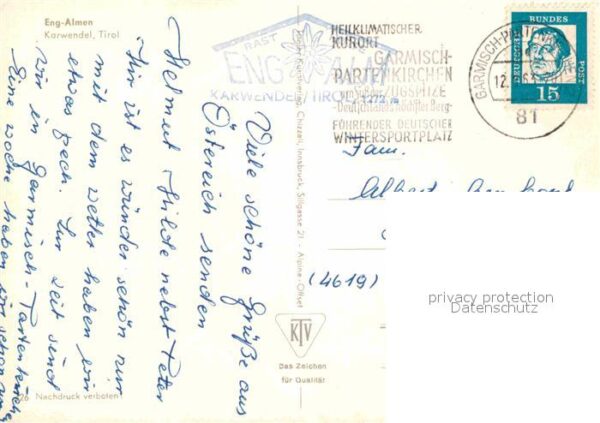 Eng-Almen
Karwendel, Tirol
RAST
ENG ALM
KARWENDEL TIROL
HEILKLIMATISCHER
KURORT
GARMISCH-
PARTENKIRCHEN
ZUGSPITZE
Deutschlands höchster Berg
FÜHRENDER DEUTSCHER
WINTERSPORTPLATZ
GARMISCH-PARTENKIRCHEN
12.
81
DEUTSCHE BUNDESPOST
15
Viele schöne Grüße aus
Östereich senden
Helmut Hilde nebst Peter
Hir ist es wunderschön nur
mit dem wetter haben wir
etwas pech. Zur Zeit sind
wir in Garmisch-Partenkirchen
Eine woche haben wir schon
Fam.
Albert
(4619)
Chizzali, Innsbruck, Sillgasse 21 - Alpine-Offset
KTV
Das Zeichen
für Qualität
26 Nachdruck verboten
privacy protection
Datenschutz